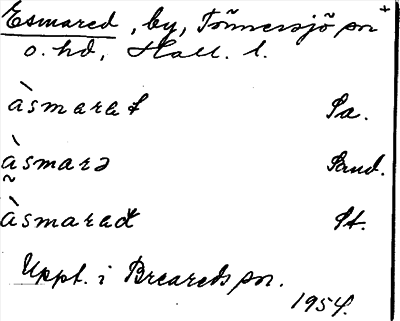 Esmared, by, Tönnersjö sn +
o. hd, Hall. l.
àsmarat Sa.
àsmarə Sand.
~
àsmarad St.
Uppt. i Breareds sn.
1954.